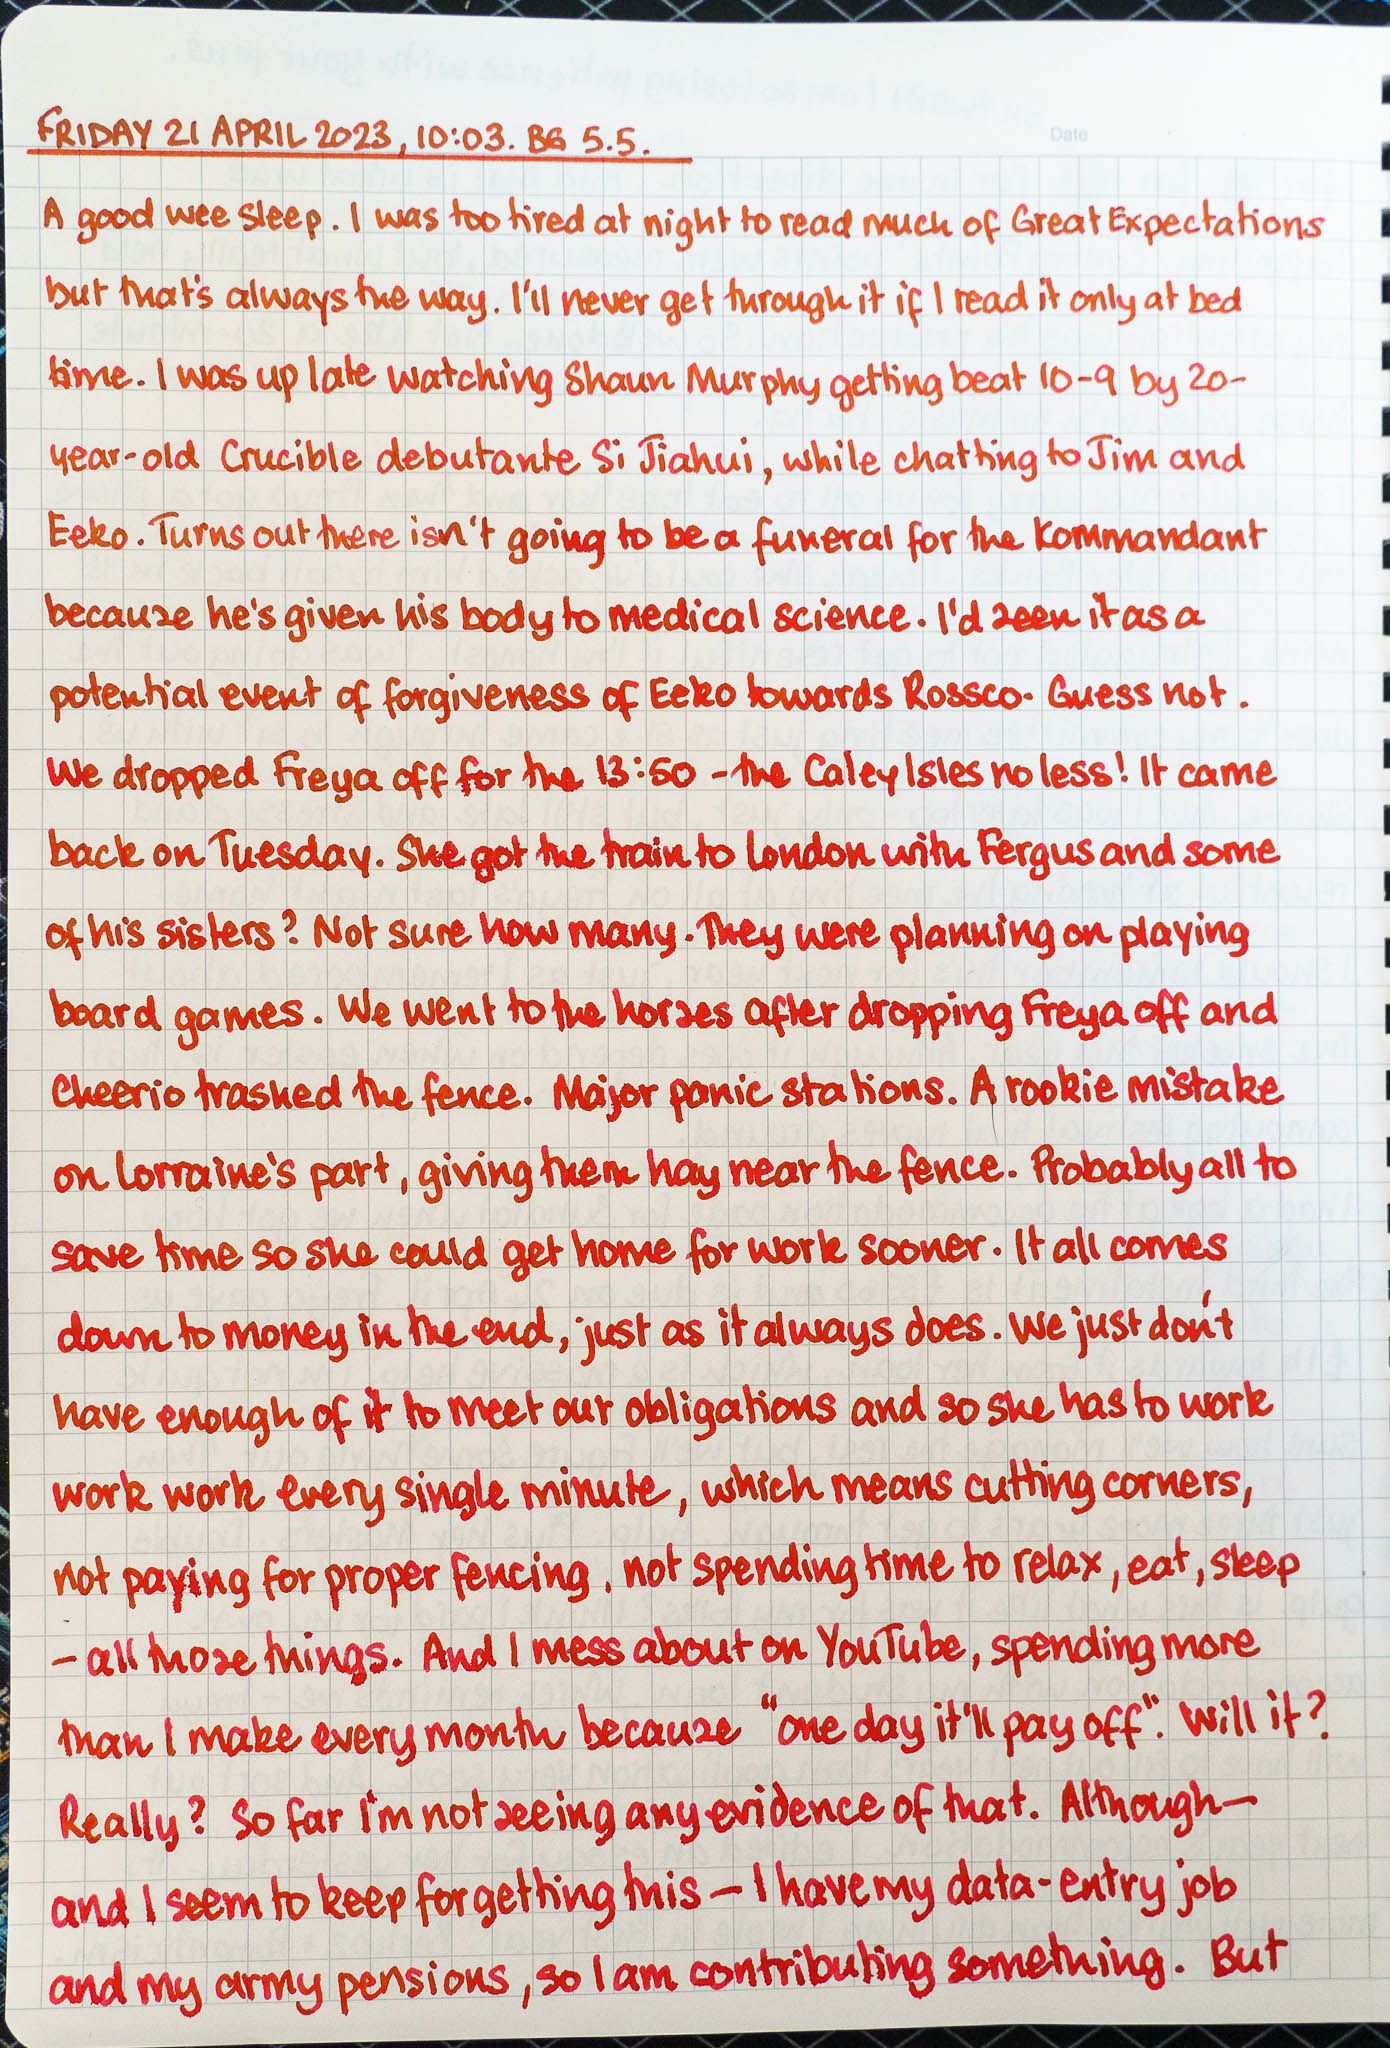 Date
FRIDAY 21 APRIL 2023, 10:03. BG 5.5.
A good wee sleep. I was too tired at night to read much of Great Expectations
but that's always the way. I'll never get through it if I read it only at bed
time. I was up late watching Shaun Murphy getting beat 10-9 by 20-
year-old Crucible debutante Si Jiahui, while chatting to Jim and
Eeko. Turns out there isn't going to be a funeral for the Kommandant
because he's given his body to medical science. I'd seen it as a
potential event of forgiveness of Eeko towards Rossco. Guess not.
We dropped Freya off for the 13:50 - the Caley Isles no less! It came
back on Tuesday. She got the train to London with Fergus and some
of his sisters? Not sure how many. They were planning on playing
board games. We went to the horses after dropping Freya off and
Cheerio trashed the fence. Major panic stations. A rookie mistake
on Lorraine's part, giving them hay near the fence. Probably all to
save time so she could get home for work sooner. It all comes
down to money in the end, just as it always does. We just don't
have enough of it to meet our obligations and so she has to work
work work every single minute, which means cutting corners,
not paying for proper fencing, not spending time to relax, eat, sleep
- all those things. And I mess about on YouTube, spending more
than I make every month because "one day it'll pay off". Will it?
Really? So far I'm not seeing any evidence of that. Although—
and I seem to keep forgetting this — I have my data-entry job
and my army pensions, so I am contributing something. But